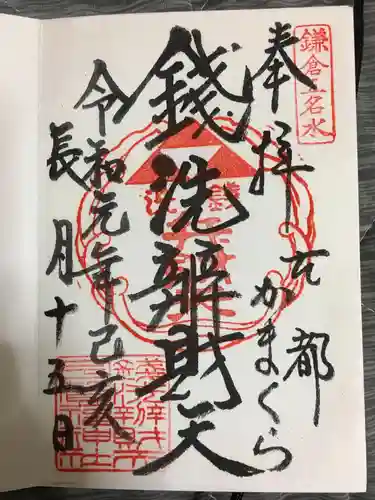 鎌倉五名水
奉拝
古都
かまくら
銭洗辨財天
令和元年己亥
長月十五日